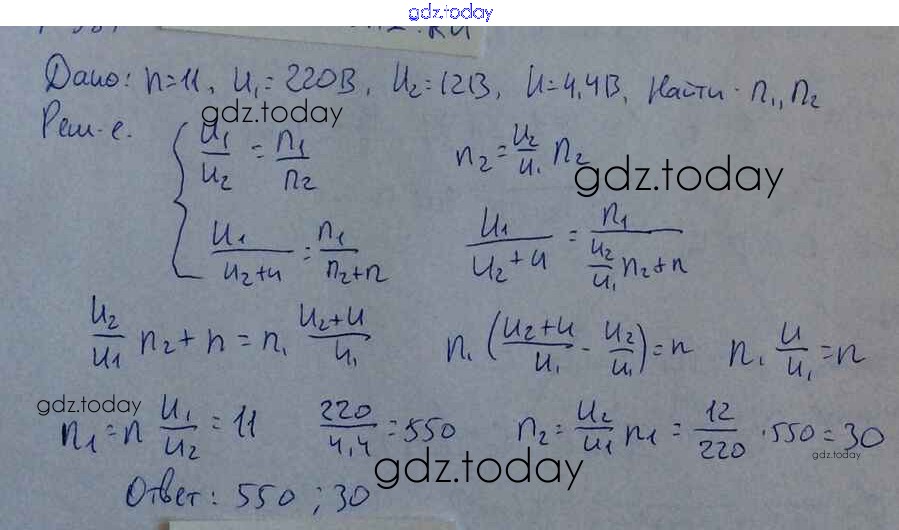 gdz.today
Дано: n=11, U₁=220В, U₂=12В, U=4,4В, Найти: n₁, n₂
Реш-е.
gdz.today
U₁/U₂ = n₁/n₂
n₂ = U₂/U₁ n₂
gdz.today
U₁/(U₂+U) = n₁/(n₂+n)
U₁/(U₂+U) = n₁/(U₂/U₁ n₂+n)
U₂/U₁ n₂ + n = n₁ (U₂+U)/U₁
n₁ ((U₂+U)/U₁ - U₂/U₁) = n
n₁ U/U₁ = n
gdz.today
n₁ = n U₁/U₂ = 11 220/4,4 = 550
n₂ = U₂/U₁ n₁ = 12/220 · 550 = 30
gdz.today
gdz.today
Ответ: 550 ; 30